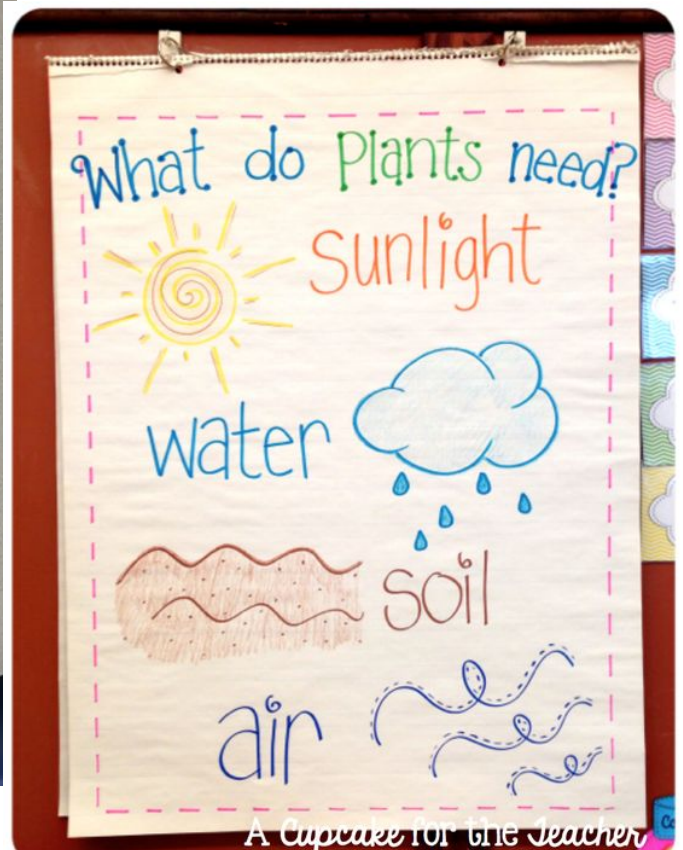 What do Plants need?
sunlight
water
soil
air
A Cupcake for the Teacher